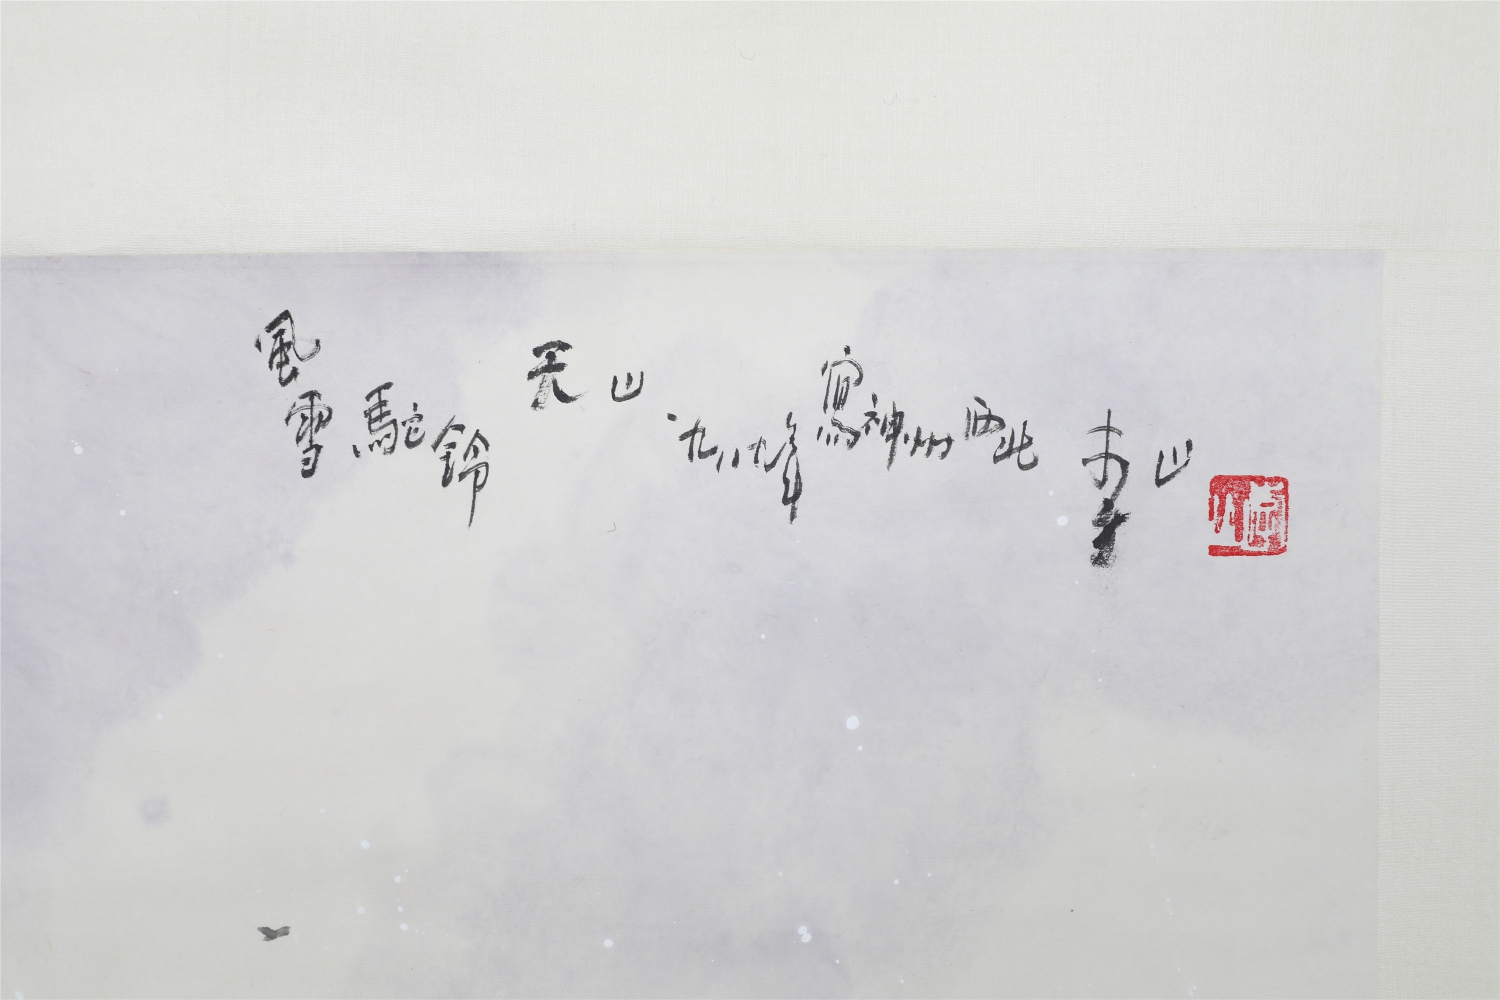 風雪駝鈴 天山 一九八九年寫神州西北 李山